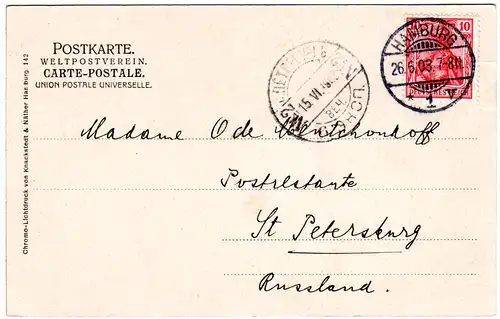 POSTKARTE.
WELTPOSTVEREIN.
CARTE-POSTALE.
UNION POSTALE UNIVERSELLE.
Chromo-Lichtdruck von Knackstedt & Näther Hamburg. 142
10
HAMBURG
26.6.03.7-8N
* 1 v
15 VI
Madame Ode
Postrestante
St Petersburg
Russland.